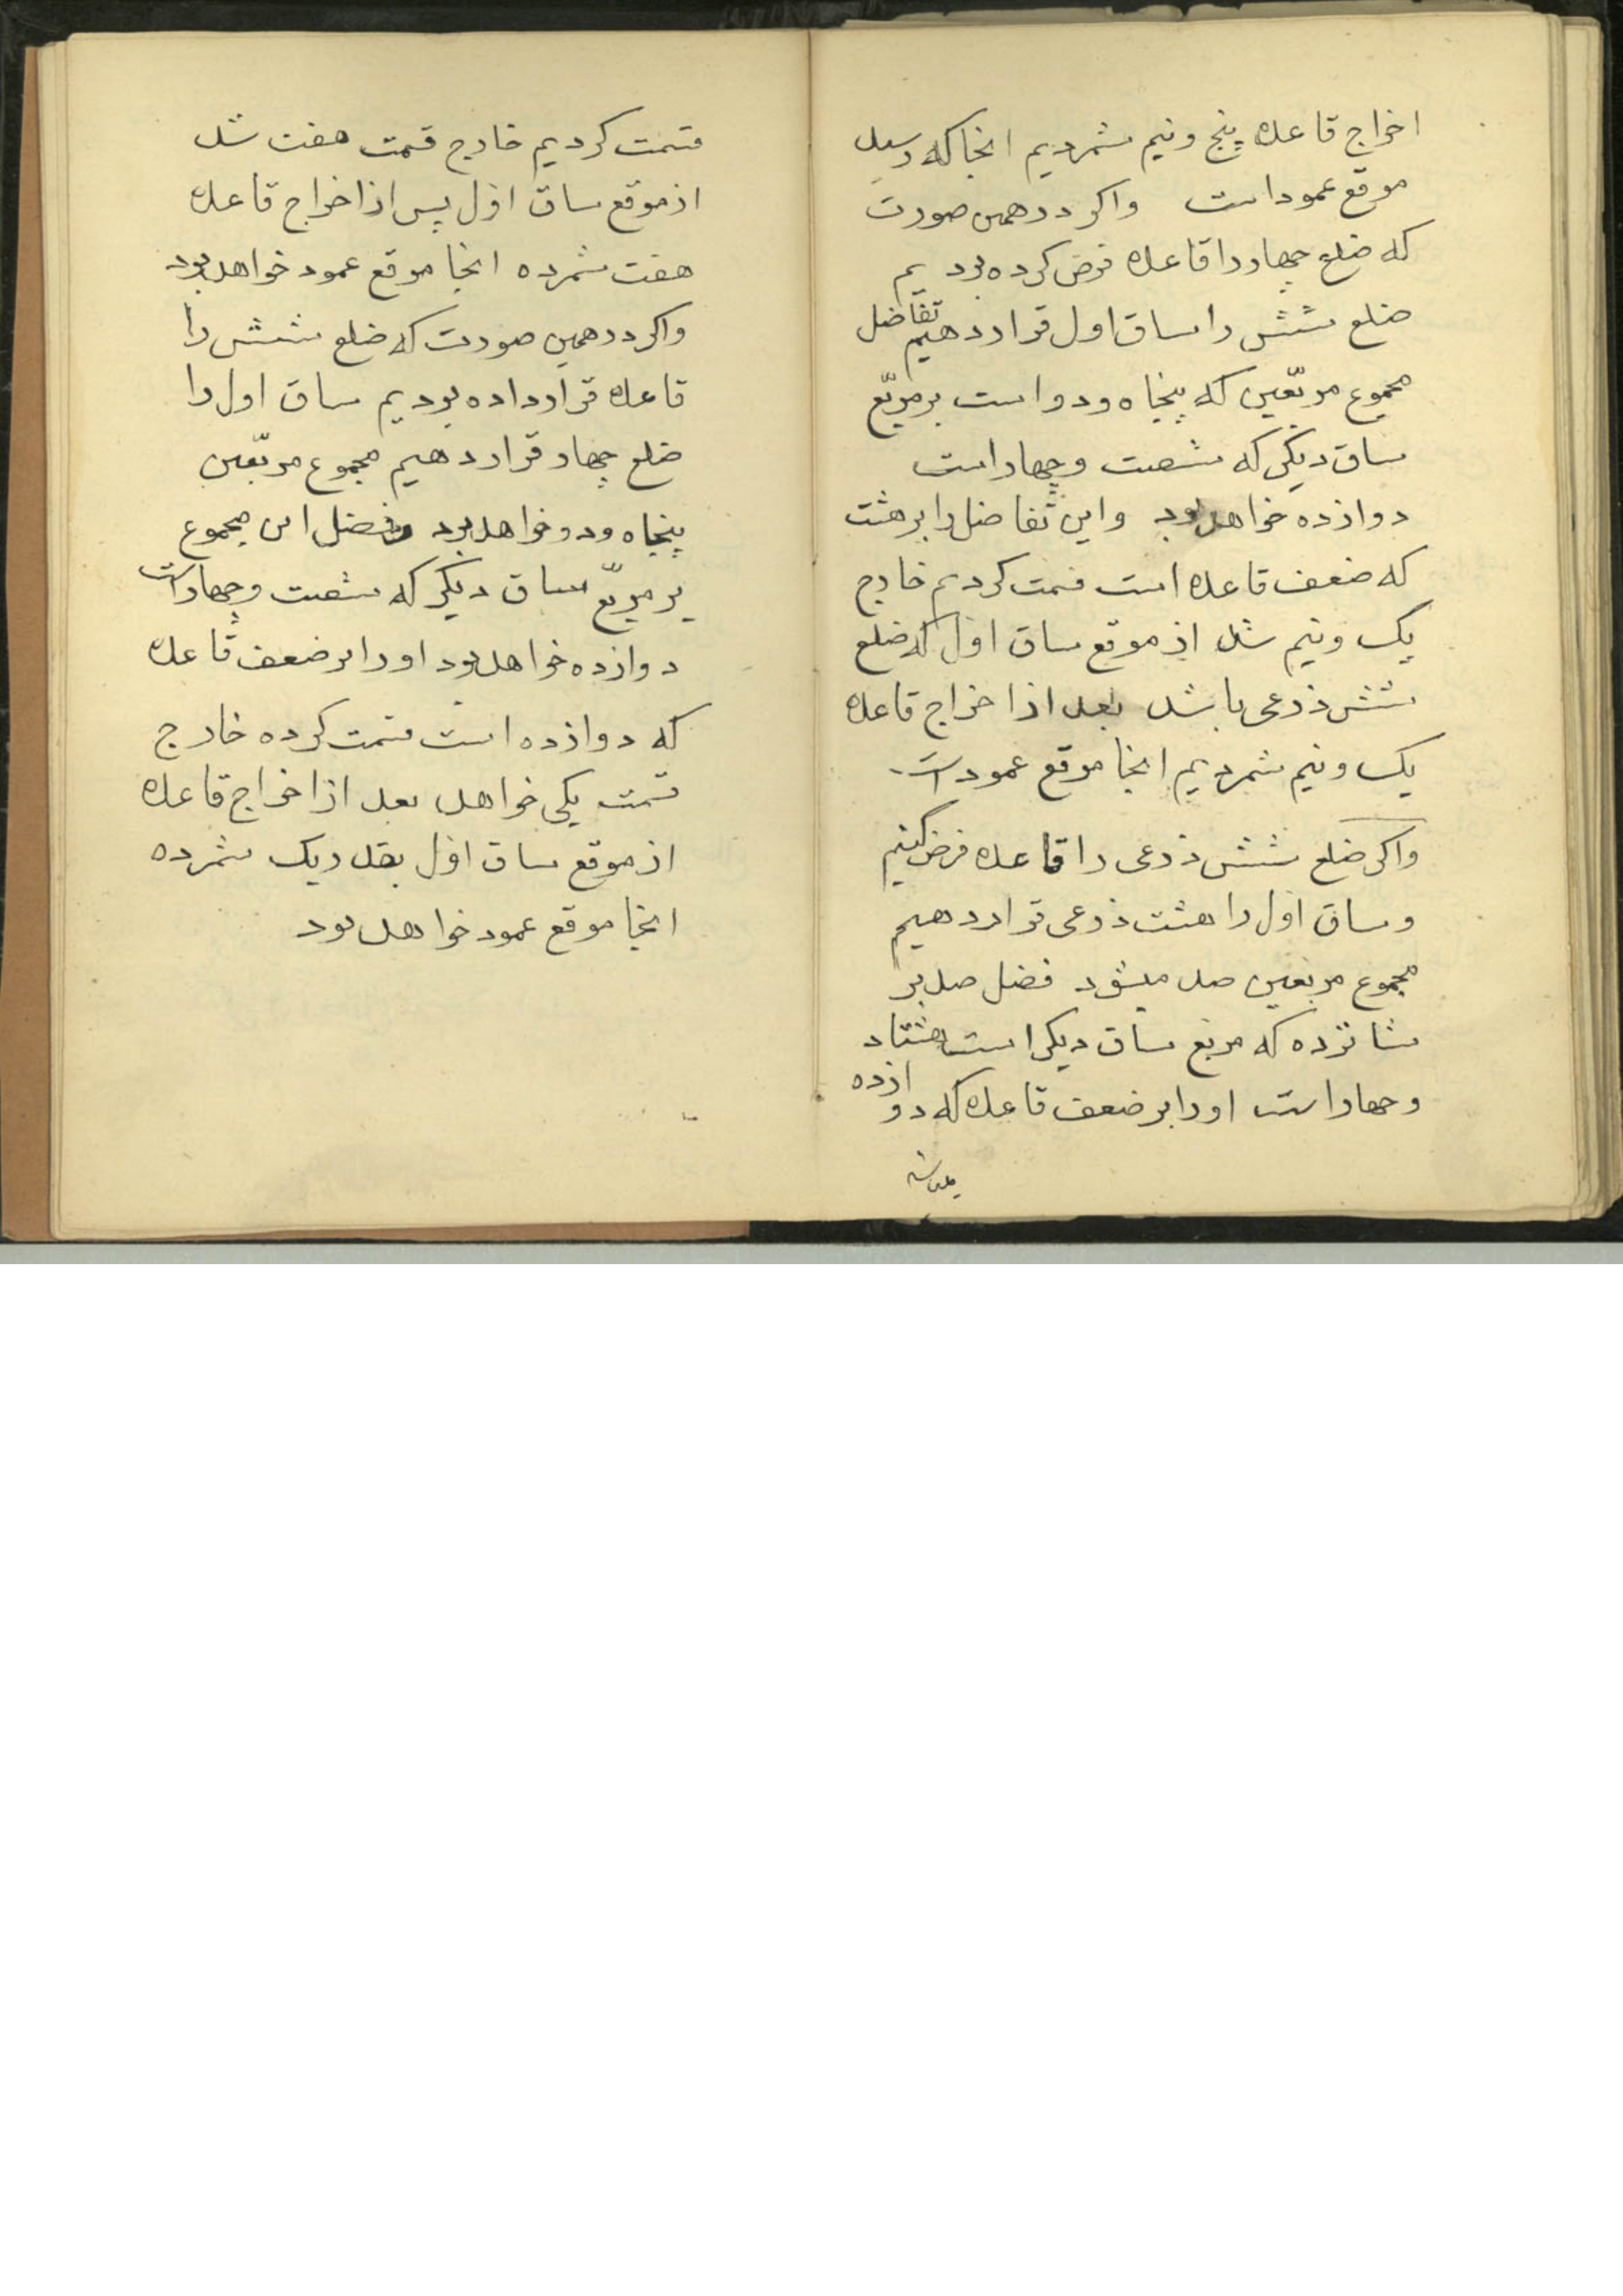 اخراج قاعده پنج و نیم شمردیم انجا که رسید
موقع عمود است واکر در همین صورت
که ضلع چهار را قاعده فرض کرده بودیم
ضلع شش را ساق اول قرار دهیم تفاضل
مجموع مربّعین که پنجاه و دو است بر مربّع
ساق دیکر که شصت و چهار است
دوازده خواهد بود و این تفاضل را بر هشت
که ضعف قاعده است قسمت کردیم خارج
یک و نیم شد از موقع ساق اوّل که ضلع
شش ذرعی باشد بعد از اخراج قاعده
یک و نیم شمردیم انجا موقع عمود است
واکر ضلع شش ذرعی را قاعده فرض کنیم
و ساق اول را هشت ذرعی قرار دهیم
مجموع مربعین صد میشود فضل صد بر
شانزده که مربع ساق دیکر است هشتاد
و چهار است او را بر ضعف قاعده که دوازده
قسمت کردیم خارج قسمت هفت شد
از موقع ساق اوّل پس از اخراج قاعده
هفت شمرده انجا موقع عمود خواهد بود
واکر در همین صورت که ضلع شش را
قاعده قرار داده بودیم ساق اول را
ضلع چهار قرار دهیم مجموع مربّعین
پنجاه و دو خواهد بود و فضل این مجموع
بر مربّع ساق دیکر که شصت و چهار است
دوازده خواهد بود او را بر ضعف قاعده
که دوازده است قسمت کرده خارج
قسمت یکی خواهد بعد از اخراج قاعده
از موقع ساق اوّل بقدر یک شمرده
انجا موقع عمود خواهد بود